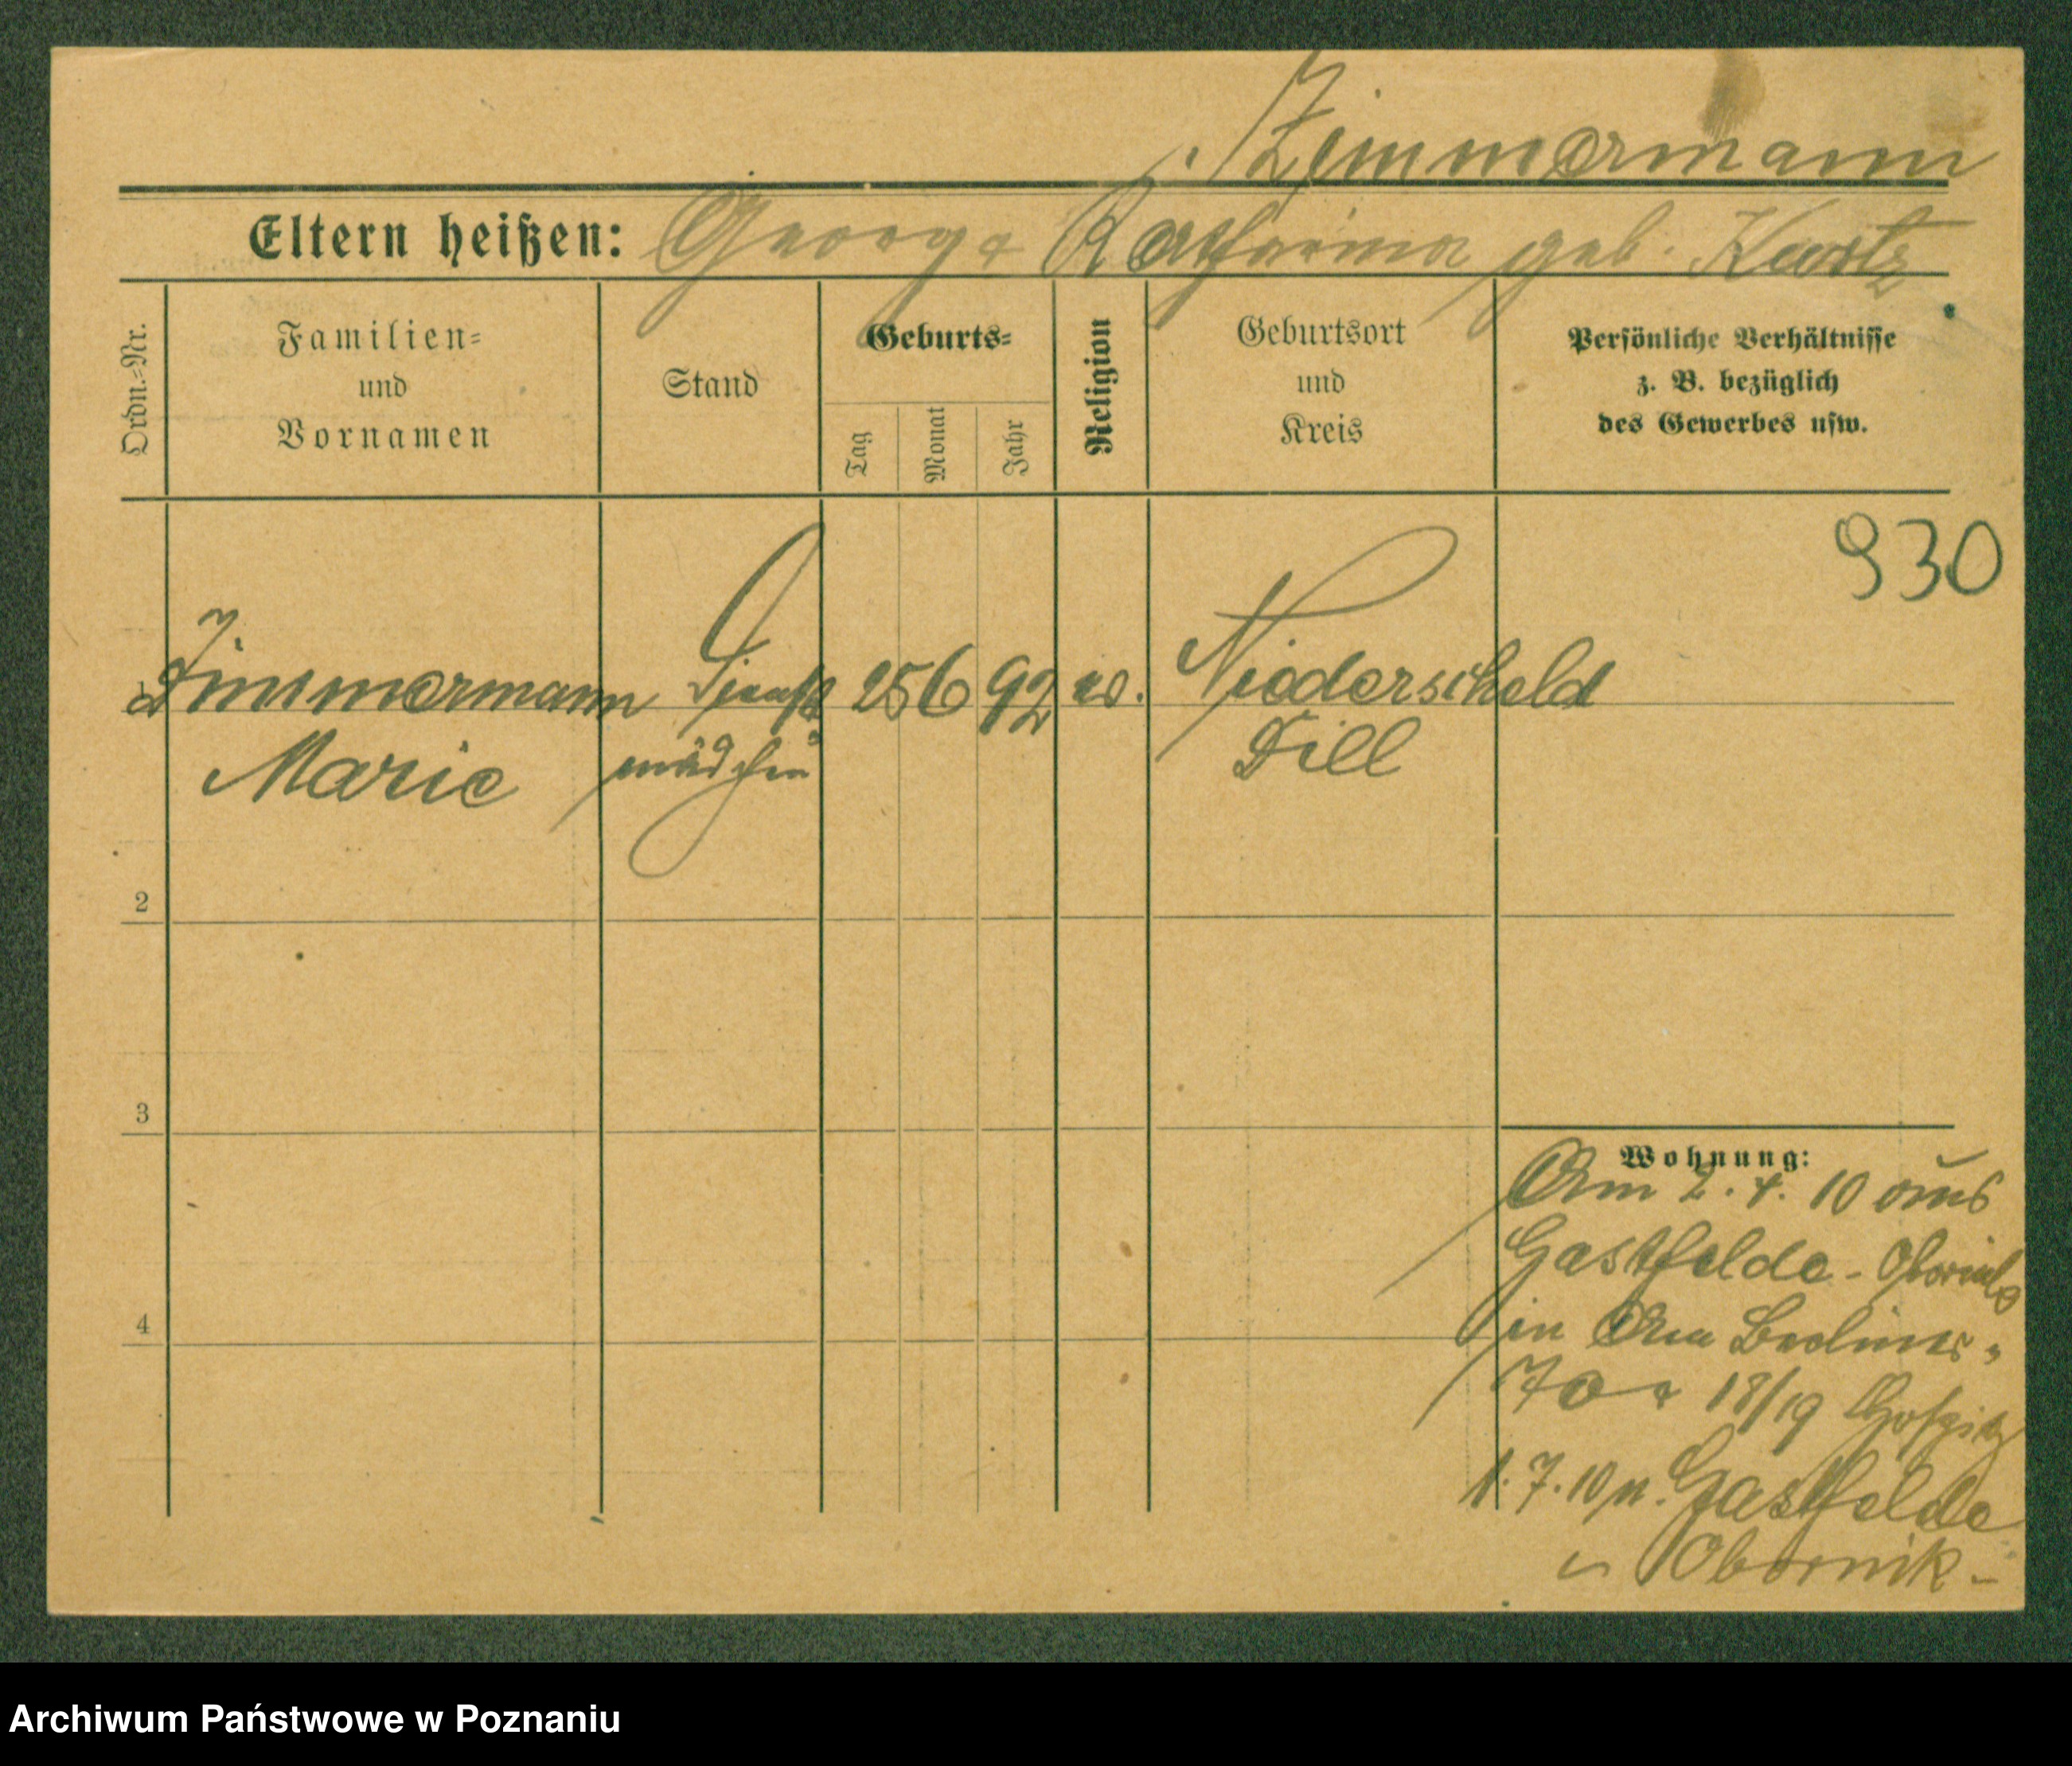 Zimmermann
Eltern heißen: George Katharina geb. Kurtz
Ordn.-Nr.
Familien-
und
Vornamen
Stand
Geburts-
Tag
Monat
Jahr
Religion
Geburtsort
und
Kreis
Persönliche Verhältnisse
z. B. bezüglich
des Gewerbes usw.
930
1 Zimmermann Dienst 25 6 92 ev. Niederscheld
Marie mädchen Dill
2
3
4
Wohnung:
Am 2. 4. 10 aus
Gastfelde - Obornik
in Berliner-
18/19 Hospitz
1. 7. 10 n. Gastfelde
Obornik -
Archiwum Państwowe w Poznaniu